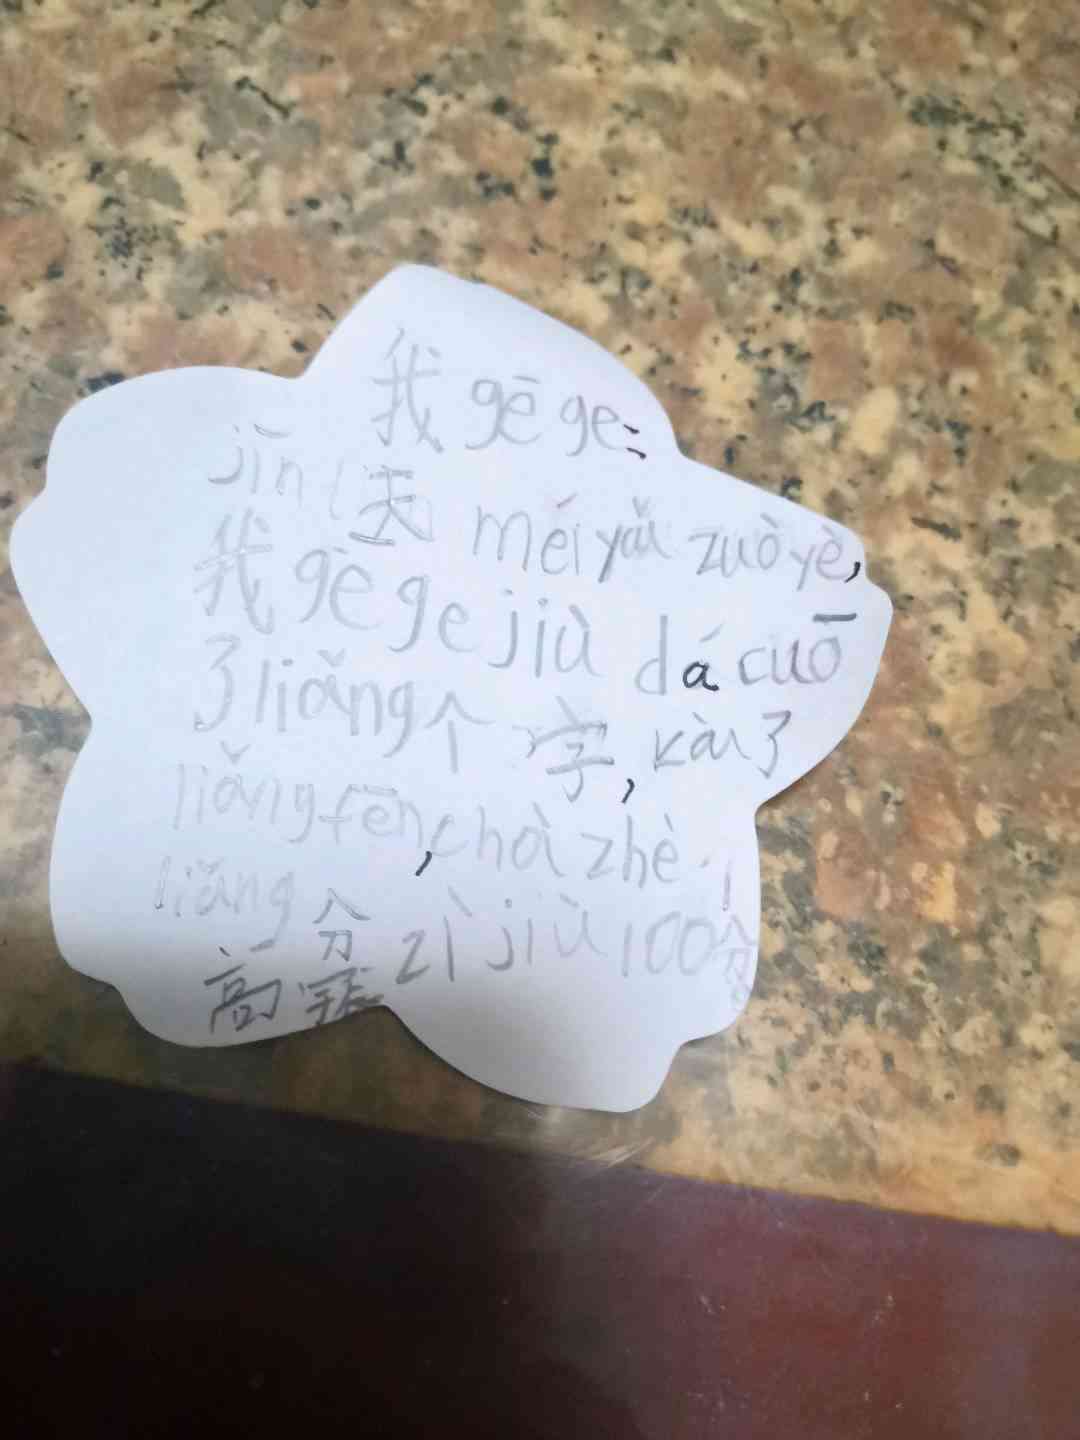 我 gē ge:
jīn 天 méi yǎi zuò yè,
我 gē ge jiù dá cuō
了 liǎng 个 字, kàn 了
liǎng fēn, chà zhè
liǎng 分 zì jiù 100分
高